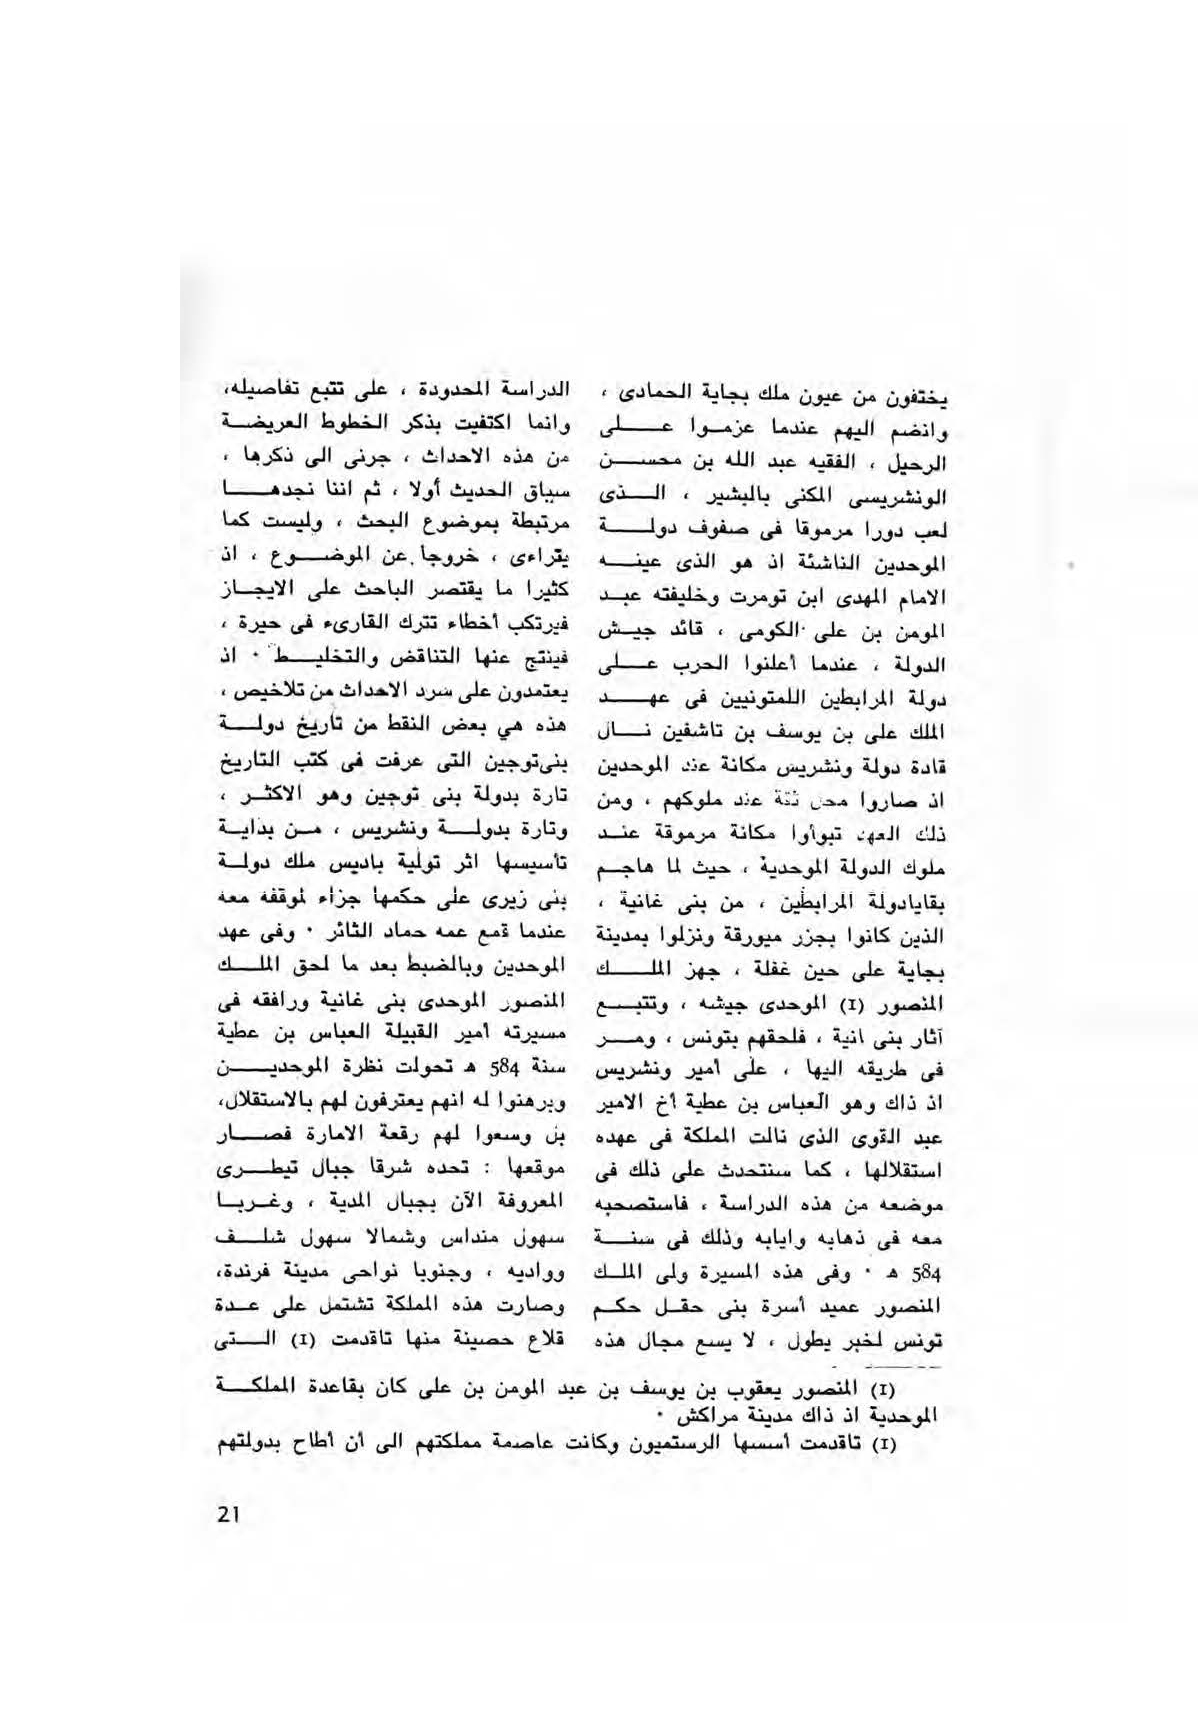 يختفون من عيون ملك بجاية الحمادى ،
وانضم اليهم عندما عزموا على
الرحيل ، الفقيه عبد الله بن محسن
الونشريسى المكنى بالبشير ، الذى
لعب دورا مرموقا فى صفوف دولة
الموحدين الناشئة اذ هو الذى عينه
الامام المهدى ابن تومرت وخليفته عبد
المومن بن على الكومى ، قائد جيش
الدولة ، عندما أعلنوا الحرب على
دولة المرابطين اللمتونيين فى عهد
الملك على بن يوسف بن تاشفين نال
قادة دولة ونشريس مكانة عند الموحدين
اذ صاروا محل ثقة عند ملوكهم ، ومن
ذلك العهد تبوأوا مكانة مرموقة عند
ملوك الدولة الموحدية ، حيث لما هاجم
بقايادولة المرابطين ، من بنى غانية ،
الذين كانوا بجزر ميورقة ونزلوا بمدينة
بجاية على حين غفلة ، جهز الملك
المنصور (I) الموحدى جيشه ، وتتبع
آثار بنى انية ، فلحقهم بتونس ، ومر
فى طريقه اليها ، على أمير ونشريس
اذ ذاك وهو العباس بن عطية أخ الامير
عبد القوى الذى نالت المملكة فى عهده
استقلالها ، كما سنتحدث على ذلك فى
موضعه من هذه الدراسة ، فاستصحبه
معه فى ذهابه وايابه وذلك فى سنة
584 هـ ٠ وفى هذه المسيرة ولى الملك
المنصور عميد أسرة بنى حفل حكم
تونس لخبر يطول ، لا يسع مجال هذه
الدراسة المحدودة ، على تتبع تفاصيله،
وانما اكتفيت بذكر الخطوط العريضة
من هذه الاحداث ، جرنى الى ذكرها ،
سياق الحديث أولا ، ثم اننا نجدها
مرتبطة بموضوع البحث ، وليست كما
يتراءى ، خروجا عن الموضوع ، اذ
كثيرا ما يقتصر الباحث على الايجاز
فيرتكب أخطاء تترك القارىء فى حيرة ،
فينتج عنها التناقض والتخليط ٠ اذ
يعتمدون على سرد الاحداث من تلاخيص ،
هذه هي بعض النقط من تأريخ دولة
بنى‌توجين التى عرفت فى كتب التاريخ
تارة بدولة بنى توجين وهو الاكثر ،
وتارة بدولة ونشريس ، من بداية
تأسيسها اثر تولية باديس ملك دولة
بنى زيرى على حكمها جزاء لموقفه معه
عندما قمع عمه حماد الثائر ٠ وفى عهد
الموحدين وبالضبط بعد ما لحق الملك
المنصور الموحدى بنى غانية ورافقه فى
مسيرته أمير القبيلة العباس بن عطية
سنة 584 هـ تحولت نظرة الموحدين
وبرهنوا له انهم يعترفون لهم بالاستقلال،
بل وسعوا لهم رقعة الامارة فصار
موقعها : تحده شرقا جبال تيطرى
المعروفة الآن بجبال المدية ، وغربا
سهول منداس وشمالا سهول شلف
وواديه ، وجنوبا نواحى مدينة فرندة،
وصارت هذه المملكة تشتمل على عدة
قلاع حصينة منها تاقدمت (I) التى
(I) المنصور يعقوب بن يوسف بن عبد المومن بن على كان بقاعدة المملكة
الموحدية اذ ذاك مدينة مراكش ٠
(I) تاقدمت أسسها الرستميون وكانت عاصمة مملكتهم الى أن أطاح بدولتهم
21